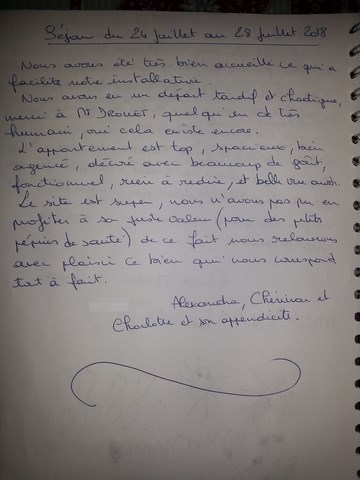 Séjour du 24 juillet au 28 juillet 2018
Nous avons été très bien accueilli ce qui a
facilité notre installation.
Nous avons eu un départ tardif et chaotique,
merci à Mr DROUET, quelqu'un de très
humain, oui cela existe encore.
L'appartement est top, spacieux, bien
agencé, décoré avec beaucoup de goût,
fonctionnel, rien à redire, et belle vue aussi.
Le site est super, nous n'avons pas pu en
profiter à sa juste valeur (pour des petits
pépins de santé) de ce fait nous relouerons
avec plaisir ce bien qui nous correspond
tout à fait.
Alexandra, et
Charlotte et son appendicite.